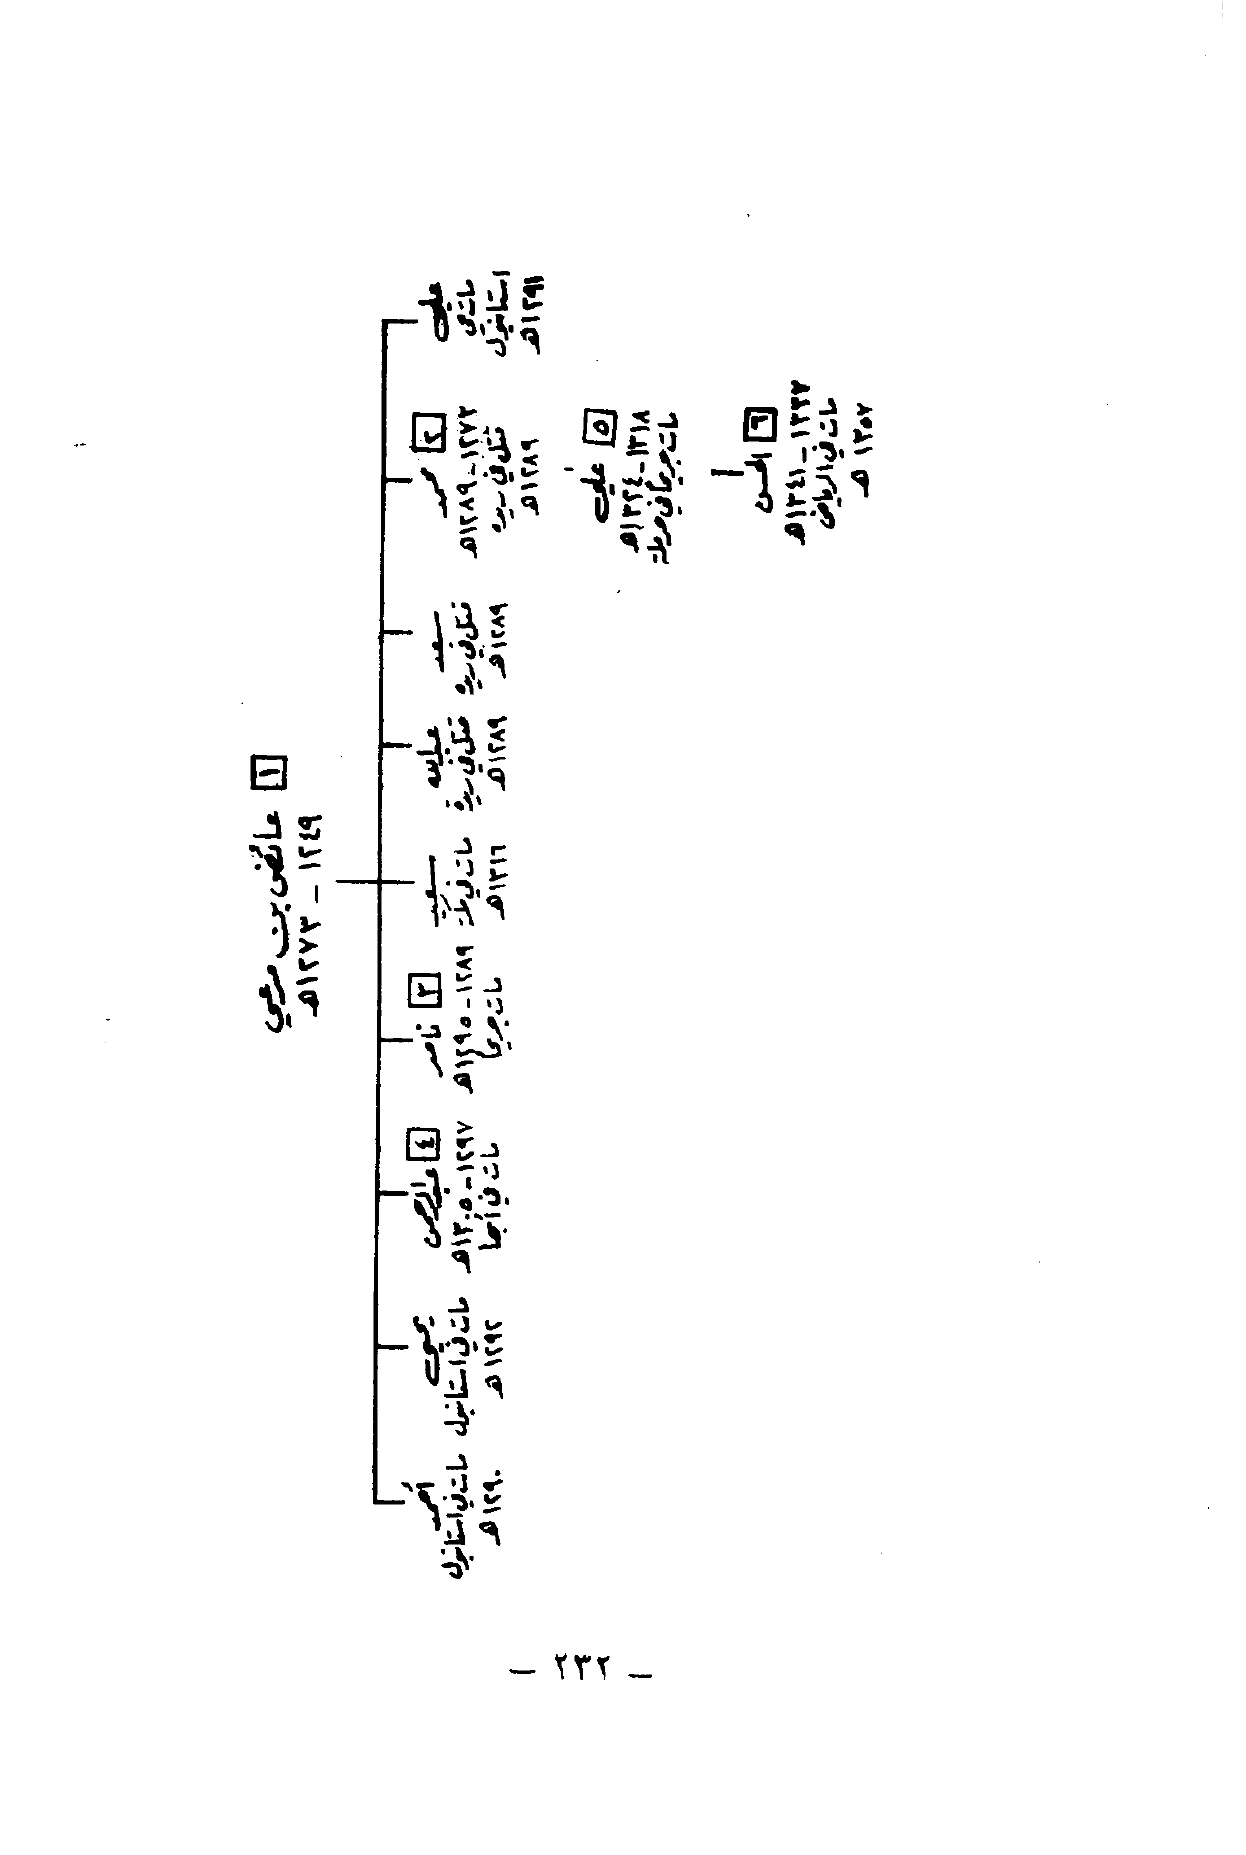 ١
عائض بن مرعي
١٢٤٩ - ١٢٧٣هـ
علي
مات في
استانبول
١٢٩١هـ
٢
محمد
١٢٧٣ - ١٢٨٩هـ
قتل في ريده
١٢٨٩هـ
سعد
قتل في ريدة
١٢٨٩هـ
عبدالله
قتل في ريدة
١٢٨٩هـ
سعيد
مات في
١٣١٦هـ
٣
ناصر
١٢٨٩ - ١٢٩٥هـ
مات جريحا
٤
عبدالرحمن
١٢٩٧ - ١٣٠٥هـ
مات في أبها
يحيى
مات في استانبول
١٢٩٢هـ
أحمد
مات في استانبول
١٢٩٠هـ
٥
علي
١٣١٨ - ١٣٢٤هـ
مات جريحا في حرملة
٩
الحسن
١٣٣٧ - ١٣٤١هـ
مات في الرياض
١٣٥٧هـ
- ٢٣٢ -